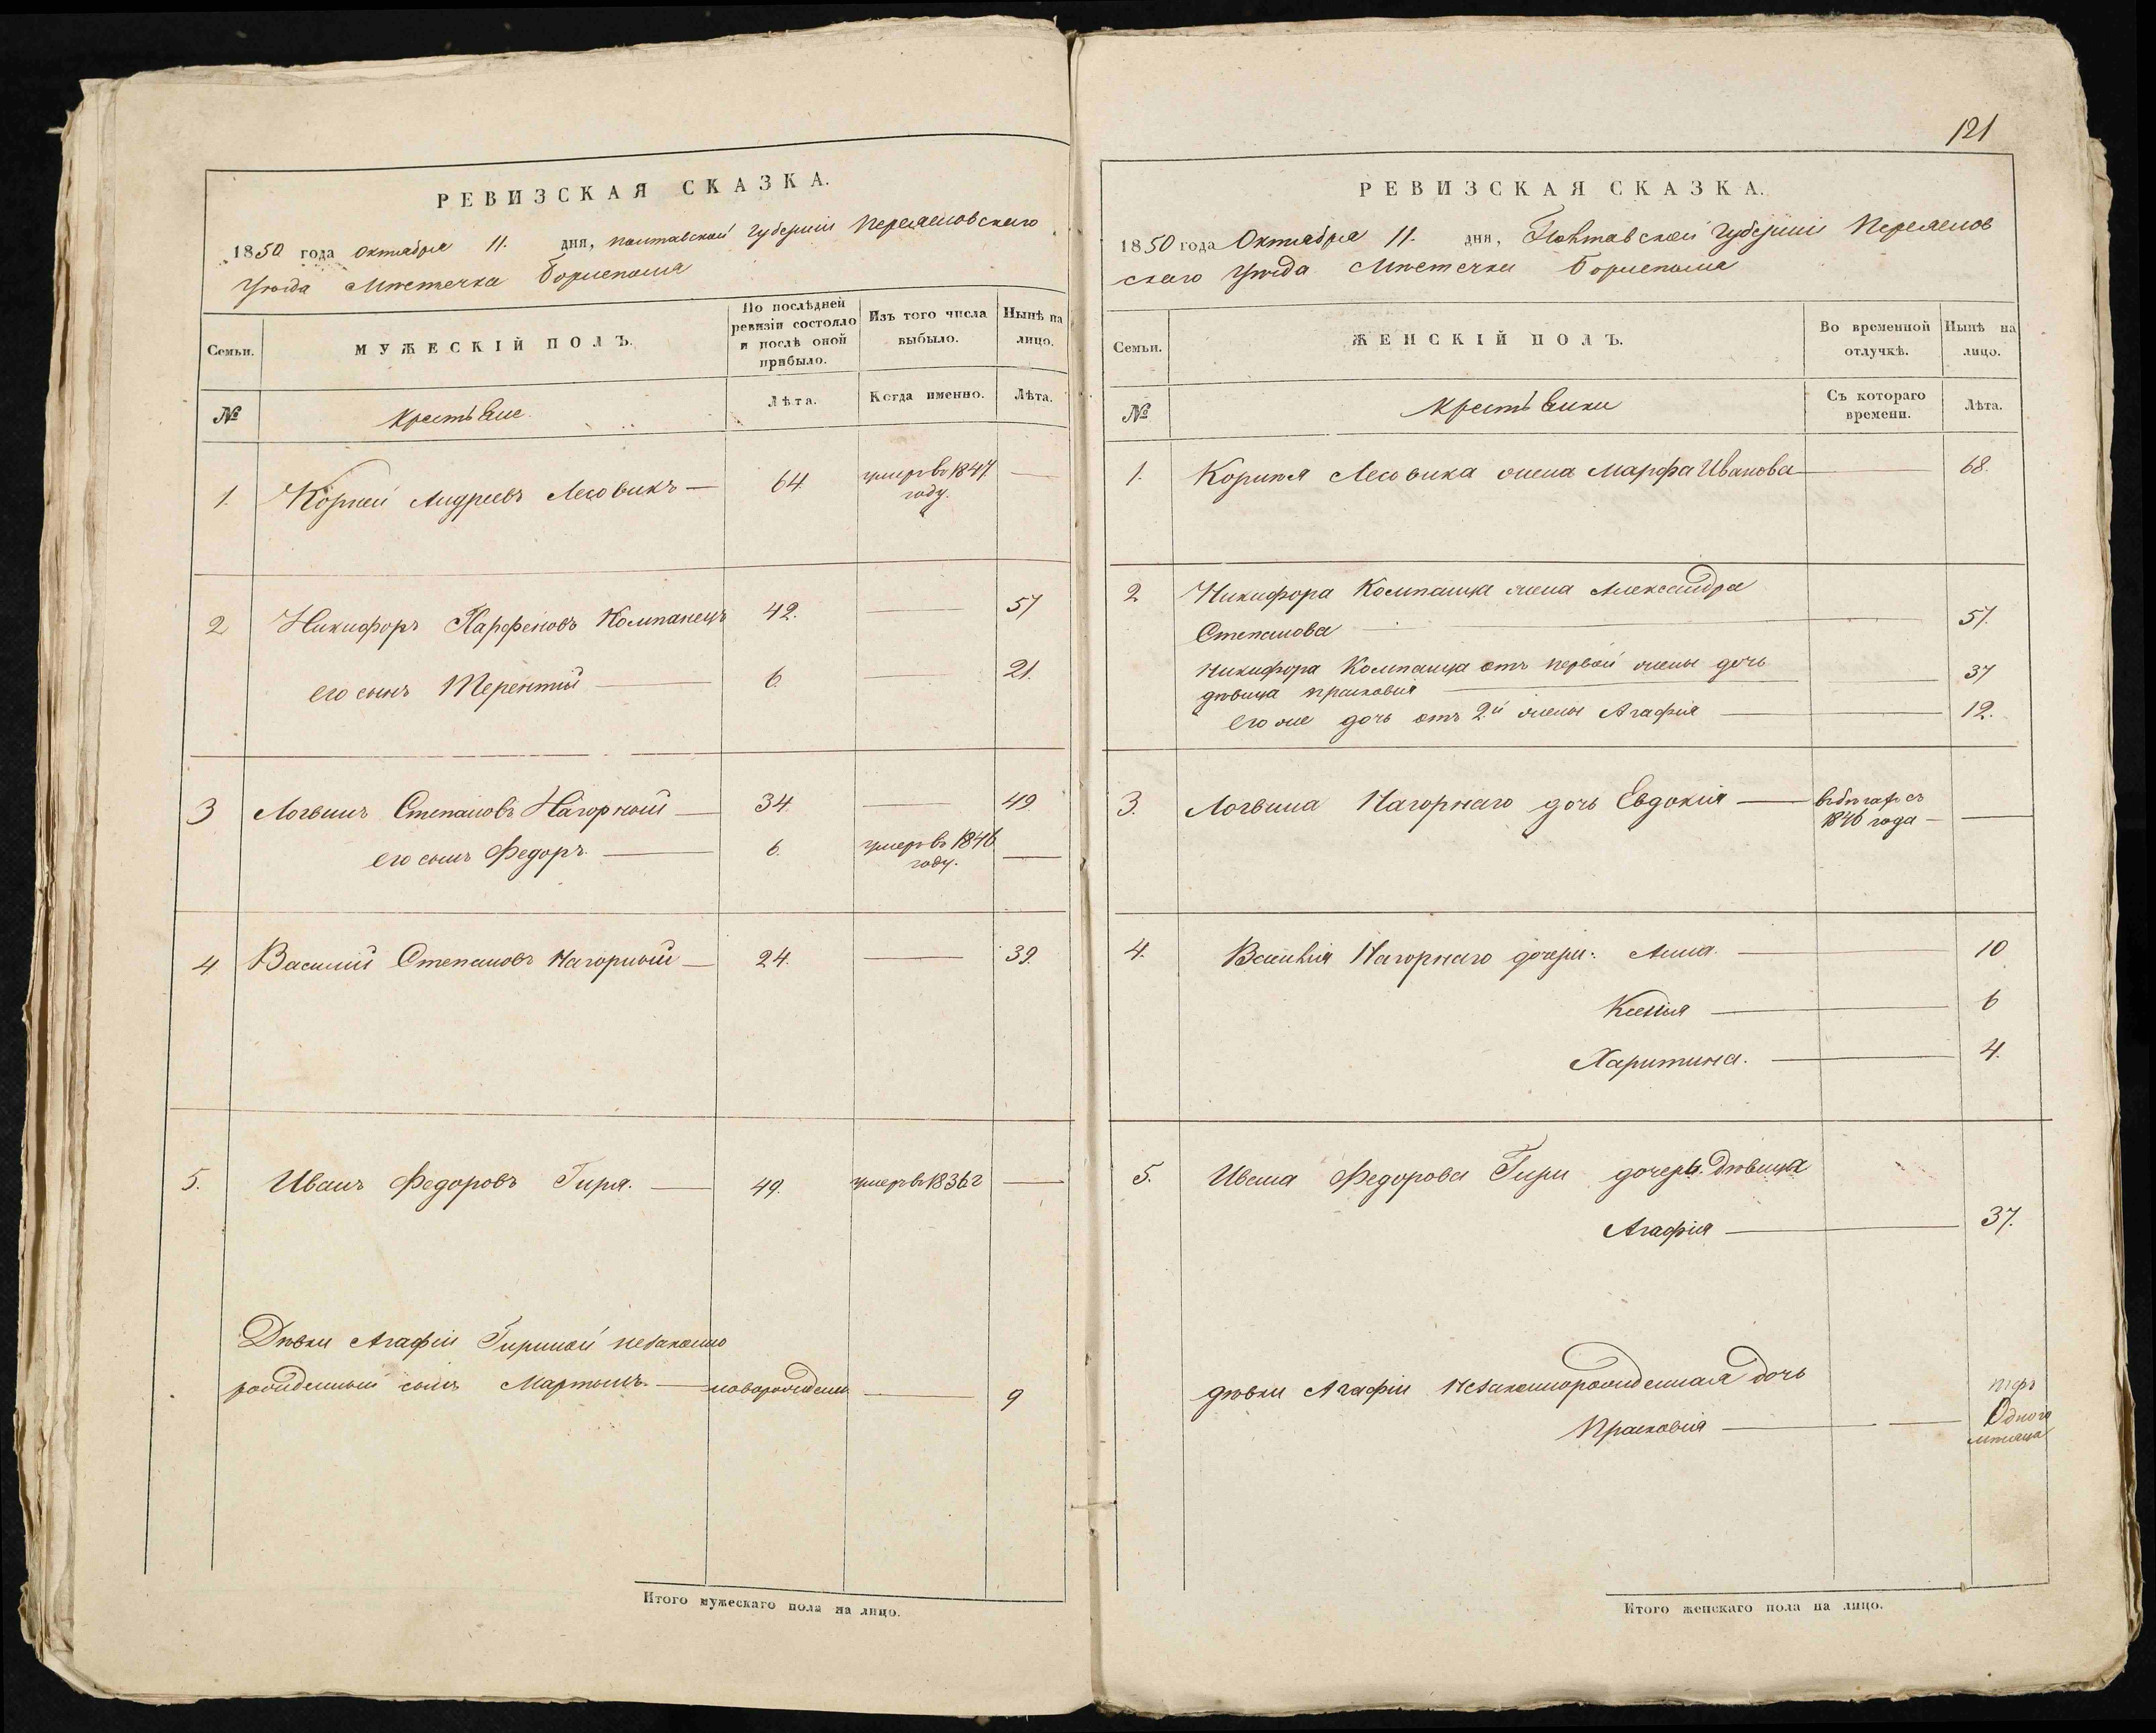 РЕВИЗСКАЯ СКАЗКА.
1850 года Октября 11. дня, Полтавской Губерніи Переяславскаго
Уѣзда Мѣстечка Борисполя
Семьи.
МУЖЕСКІЙ ПОЛЪ.
По послѣдней ревизіи состояло и послѣ оной прибыло.
Изъ того числа выбыло.
Нынѣ на лицо.
№
Крестьяне.
Лѣта.
Когда именно.
Лѣта.
1. Корней Андреевъ Лесовикъ — 64. умеръ въ 1847 —
году.
2 Никифоръ Парфеновъ Компанецъ 42. — 57
его сынъ Терентій — 6. — 21.
3 Логвинъ Степановъ Нагорной — 34. — 49.
его сынъ Федоръ. — 6. умеръ въ 1846 —
году.
4 Василий Степановъ Нагорной — 24. — 39.
5. Иванъ Федоровъ Гиря. — 49. умеръ въ 1836 г —
Дѣвки Агафіи Гириной незаконно
рожденный сынъ Мартынъ. — новорожденъ — 9
Итого мужескаго пола на лицо.
121
РЕВИЗСКАЯ СКАЗКА.
1850 года Октября 11. дня, Полтавской Губерніи Переяслав
скаго Уѣзда Мѣстечка Борисполя
Семьи.
ЖЕНСКІЙ ПОЛЪ.
Во временной отлучкѣ.
Нынѣ на лицо.
№
Крестьянки
Съ котораго времени.
Лѣта.
1. Корнѣя Лесовика жена Марфа Иванова — 68.
2 Никифора Компанца жена Александра
Степанова — 57.
Никифора Компанца отъ первой жены дочь
дѣвица Прасковія — 37
его же дочь отъ 2й жены Агафія — 12.
3. Логвина Нагорнаго дочь Евдокія — въ бѣгахъ съ
1846 года —
4. Василія Нагорнаго дочери: Анна. — 10
Ксенія — 6
Харитина. — 4.
5. Ивана Федорова Гири дочерь. Дѣвица
Агафія — 37.
дѣвки Агафіи Незаконнорожденная дочь
Прасковія — — Одного
мѣсяца
Итого женскаго пола на лицо.